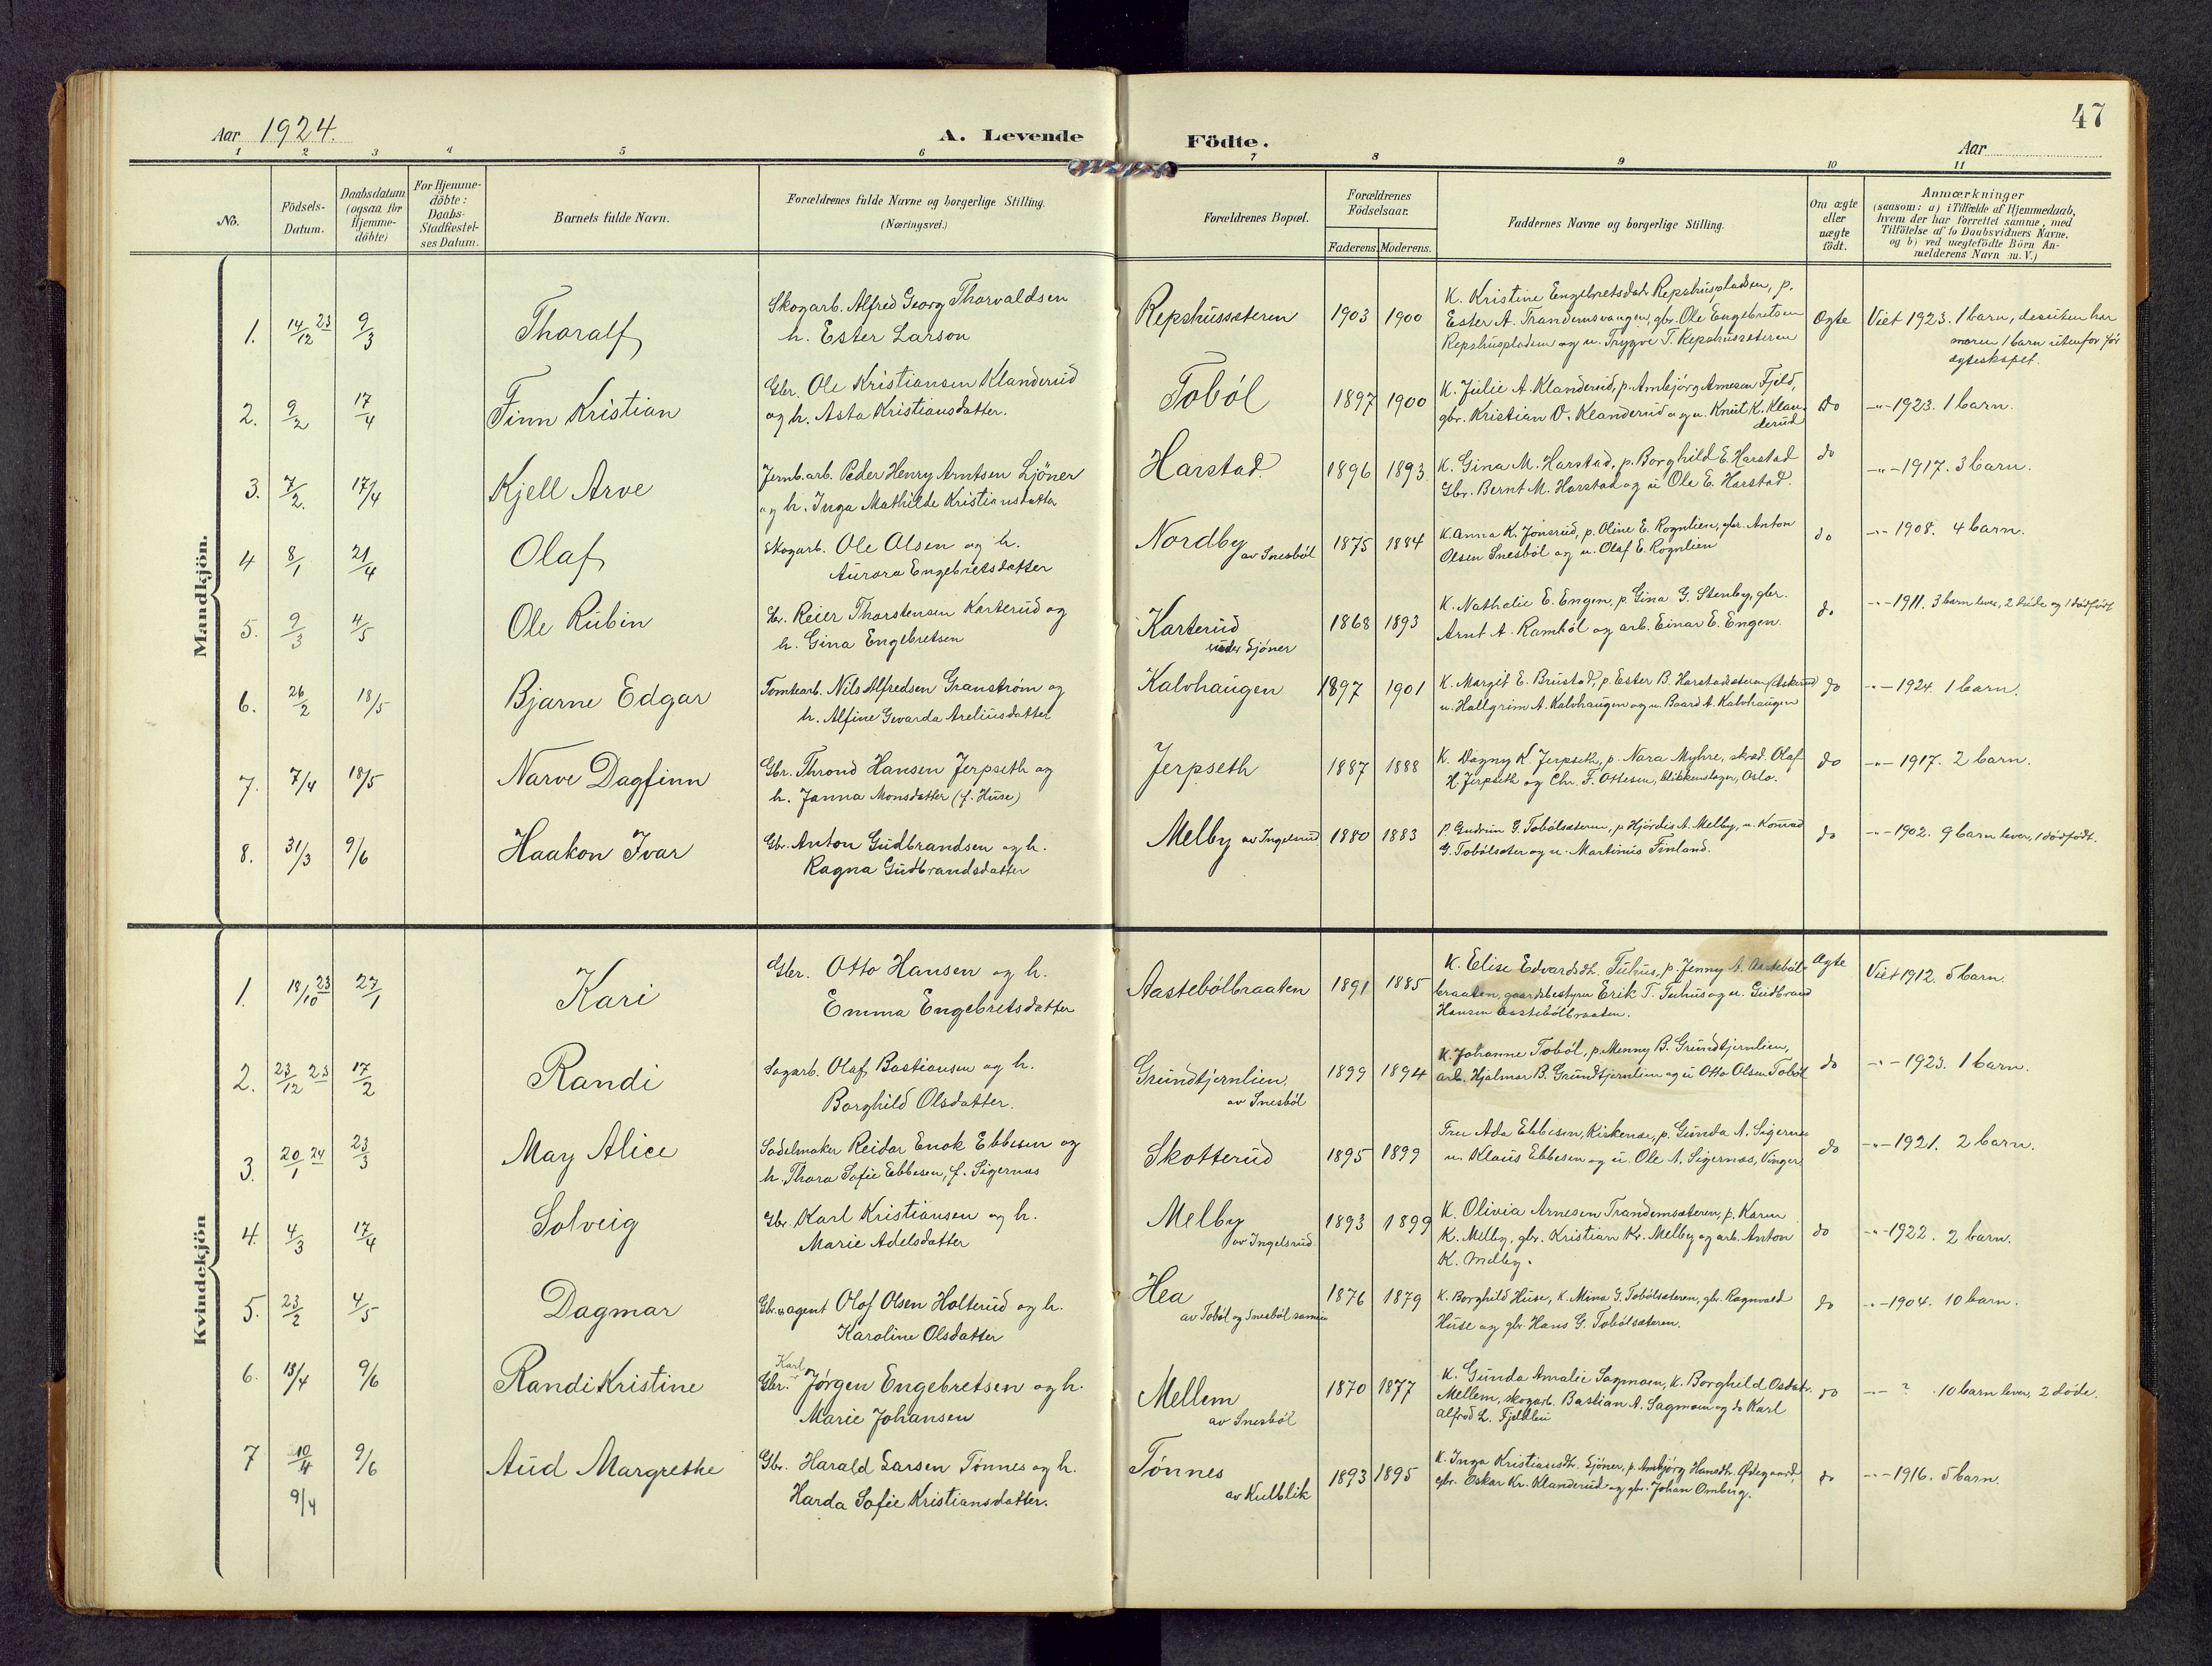 47
Aar 1924.
A. Levende Födte.
Aar
1 2 3 4 5 6 7 8 9 10 11
No.
Födsels-
Datum.
Daabsdatum
(ogsaa for
Hjemme-
döbte)
For Hjemme-
döbte:
Daabs-
Stadfæstel-
ses Datum.
Barnets fulde Navn.
Forældrenes fulde Navne og borgerlige Stilling.
(Næringsvei.)
Forældrenes Bopæl.
Forældrenes
Födselsaar.
Faderens. Moderens.
Faddernes Navne og borgerlige Stilling.
Om ægte
eller
uægte
födt.
Anmærkninger
(saasom: a) i Tilfælde af Hjemmedaab,
hvem der har forrettet samme, med
Tilföielse af to Daabsvidners Navne.
og b) ved uægtefödte Börn An-
melderens Navn m. V.)
Mandkjön.
1. 14/12 23 9/3 Thoralf
Skogarb. Alfred Georg Thorvaldsen
h. Ester Larson
Repshussæteren 1903 1900
K. Kristine Engebretsdatr Repshuspladsen, p.
Ester A. Trandemsvangen, gbr. Ole Engebretsen
Repshuspladsen og u. Trygve T. Repshussæteren
Ægte
Viet 1923. 1 barn, desuten har
moren 1 barn utenfor før
egteskapet.
2. 9/2 17/4 Finn Kristian
Gbr. Ole Kristiansen Klanderud
og h. Asta Kristiansdatter.
Toból 1897 1900
K. Julie A. Klanderud, p. Ambjörg Arnesen Fjeld,
gbr. Kristian O. Klanderud og u. Knut K. Klan-
derud
do -"- 1923. 1 barn.
3. 7/2. 17/4 Kjell Arve
Jernb.arb. Peder Henry Arntsen Ljöner
og h. Inga Mathilde Kristiansdatter
Harstad 1896 1893
K. Gina M. Harstad, p. Borghild E. Harstad
Gbr. Bernt M. Harstad og u Ole E. Harstad.
do -"- 1917. 3 barn.
4 8/1 21/4 Olaf
Skogarb. Ole Olsen og h.
Aurora Engebretsdatter
Nordby
av Snesból
1875 1884
K. Anna K. Jonsrud, p. Oline E. Rognlien, gbr. Anton
Olsen Snesból og u. Olaf E. Rognlien
do -"- 1908. 4 barn.
5. 9/3 4/5 Ole Rubin
Gbr. Reier Thorstensen Karterud og
h. Gina Engebretsen
Karterud
under Ljöner
1868 1893
K. Nathalie E. Engen, p. Gina G. Stenby, gbr.
Arnt A. Ramból og arb. Einar E. Engen.
do -"- 1911. 3 barn lever, 2 døde og 1 dødfødt
6. 26/2 18/5 Bjarne Edgar
Tomtearb. Nils Alfredsen Granström og
h. Alfine Gevarda Areliusdatter
Kalvhaugen 1897 1901
K. Margit E. Brustad, p. Ester B. Harstadsæteren (Askerud)
u. Hallgrim A. Kalvhaugen og u. Baard A. Kalvhaugen
do -"- 1924. 1 barn.
7. 7/4 18/5 Narve Dagfinn
Gbr. Thrond Hansen Jerpseth og
h. Janna Monsdatter (f. Huse)
Jerpseth 1887 1888
K. Dagny K. Jerpseth, p. Nara Myhre, Olaf
H. Jerpseth og Chr. F. Ottesen, blikkenslager, Oslo.
do -"- 1917. 2 barn.
8. 31/3 9/6 Haakon Ivar
Gbr. Anton Gudbrandsen og h.
Ragna Gudbrandsdatter
Melby av Ingelsrud 1880 1883
P. Gudrun G. Tobólsæteren, p Hjördis A. Melby, u. Konrad
G. Tobólsæter og u. Martinius Finland.
do -"- 1902. 9 barn lever, 1 dødfødt.
Kvindekjön
1. 18/10 23 27/1 Kari
Gbr. Otto Hansen og h.
Emma Engebretsdatter
Aastebólbraaten 1891 1885
K. Elise Edvardsdtr. Tuhus, p. Jenny A. Aasteból-
braaten, gaardsbestyrer Erik T. Tuhus og u. Gudbrand
Hansen Aastebólbraaten.
Ægte Viet 1912. 5 barn.
2. 23/12 23 17/2 Randi
Sagarb. Olaf Bastiansen og h.
Borghild Olsdatter.
Grundtjernlien
av Snesból
1899 1894
K. Johanne Toból, p. Menny B. Grundtjernlien,
arb. Hjalmar B. Grundtjernlien og u Otto Olsen Toból
do -"- 1923. 1 barn.
3. 20/1 24 23/3 May Alice
Sadelmaker Reidar Enok Ebbesen og
h. Thora Sofie Ebbesen, f. Sigernæs
Skotterud 1895 1899
Fru Ada Ebbesen, Kirkenær, p. Gunda A. Sigernes
u. Klaus Ebbesen og u. Ole A. Sigernæs, Vinger
do -"- 1921. 2 barn.
4. 4/3 17/4 Solveig
Gbr. Karl Kristiansen og h.
Marie Adelsdatter
Melby
av Ingelsrud
1893 1899
K. Olivia Arnesen Trandemsæteren, p. Karen
K. Melby, gbr. Kristian Kr. Melby og arb. Anton
K. Melby.
do -"- 1922. 2 barn.
5. 23/2 4/5 Dagmar
Gbr. & agent Olof Olsen Holterud og h.
Karoline Olsdatter
Hea
av Toból og Snesból
1876 1879
K. Borghild Huse, K. Mina G. Tobólsæteren, gbr. Ragnvald
Huse og gbr. Hans G. Tobólsæteren.
do -"- 1904. 10 barn.
6. 13/4 9/6 Randi Kristine
Karl
Gbr. Jørgen Engebretsen og h.
Marie Johansen
Mellem
av Snesból
1870 1877
K. Gunda Amalie Sagmoen, K. Borghild Osdatr.
Mellem, skogarb. Bastian A. Sagmoen og do Karl
Alfred L. Fjeldlien
do -"- ? 10 barn lever, 2 døde.
7 10/4 9/6 Aud Margrethe
9/4
Gbr. Harald Larsen Tønnes og h.
Harda Sofie Kristiansdatter.
Tønnes
av Kulblik
1893 1895
K. Inga Kristiansdtr. Ljöner, p. Ambjörg Hansdtr. Ødegaard,
gbr. Oskar Kr. Klanderud og gbr. Johan Omberg.
do -"- 1916. 5 barn.